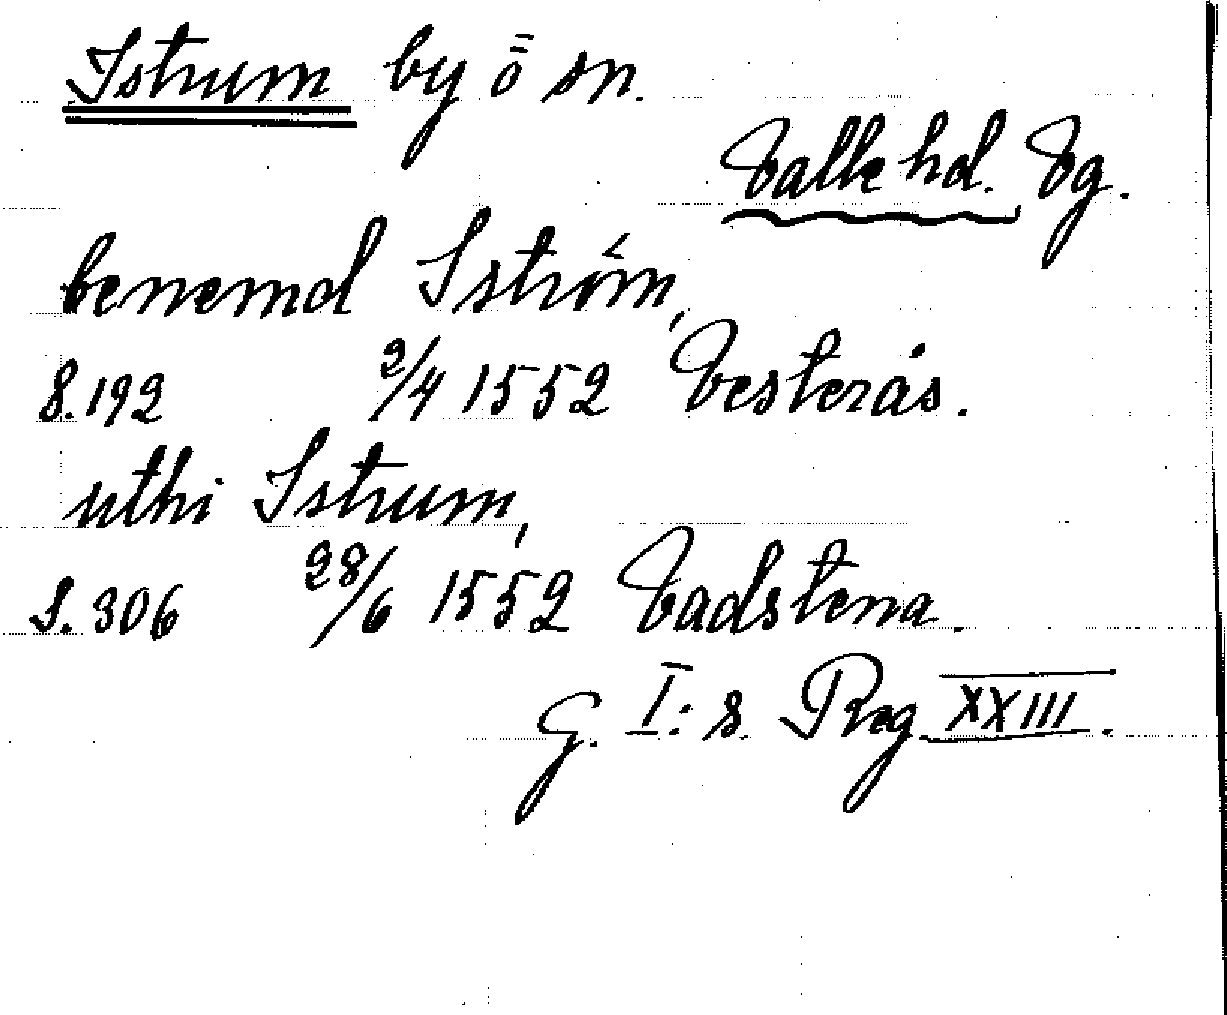 Istrum by ö sn.
Valle hd. Vg.
benemd Iström,
S. 192 2/4 1552 Vesterås.
uthi Istrum,
S. 306 28/6 1552 Vadstena.
G. I:s. Reg. XXIII.